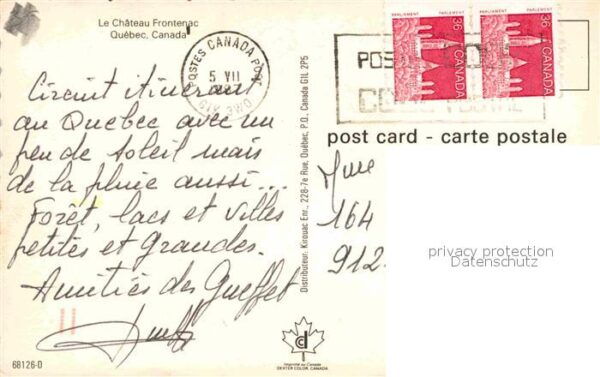 Le Château Frontenac
Québec, Canada
POSTES CANADA POST
5 VII
PARLIAMENT PARLEMENT
36
CANADA
PARLIAMENT PARLEMENT
36
CANADA
Circuit itinérant
au Quebec avec un
peu de soleil mais
de la pluie aussi...
Forêt, lacs et villes
petites et Grandes.
Amitiés des Gueffet
68126-D
Distributeur: Kirouac Enr., 228-7e Rue, Québec, P.Q., Canada G1L 2P5
post card - carte postale
Mme
164
912
privacy protection
Datenschutz
Imprimé au Canada
DEXTER COLOR, CANADA